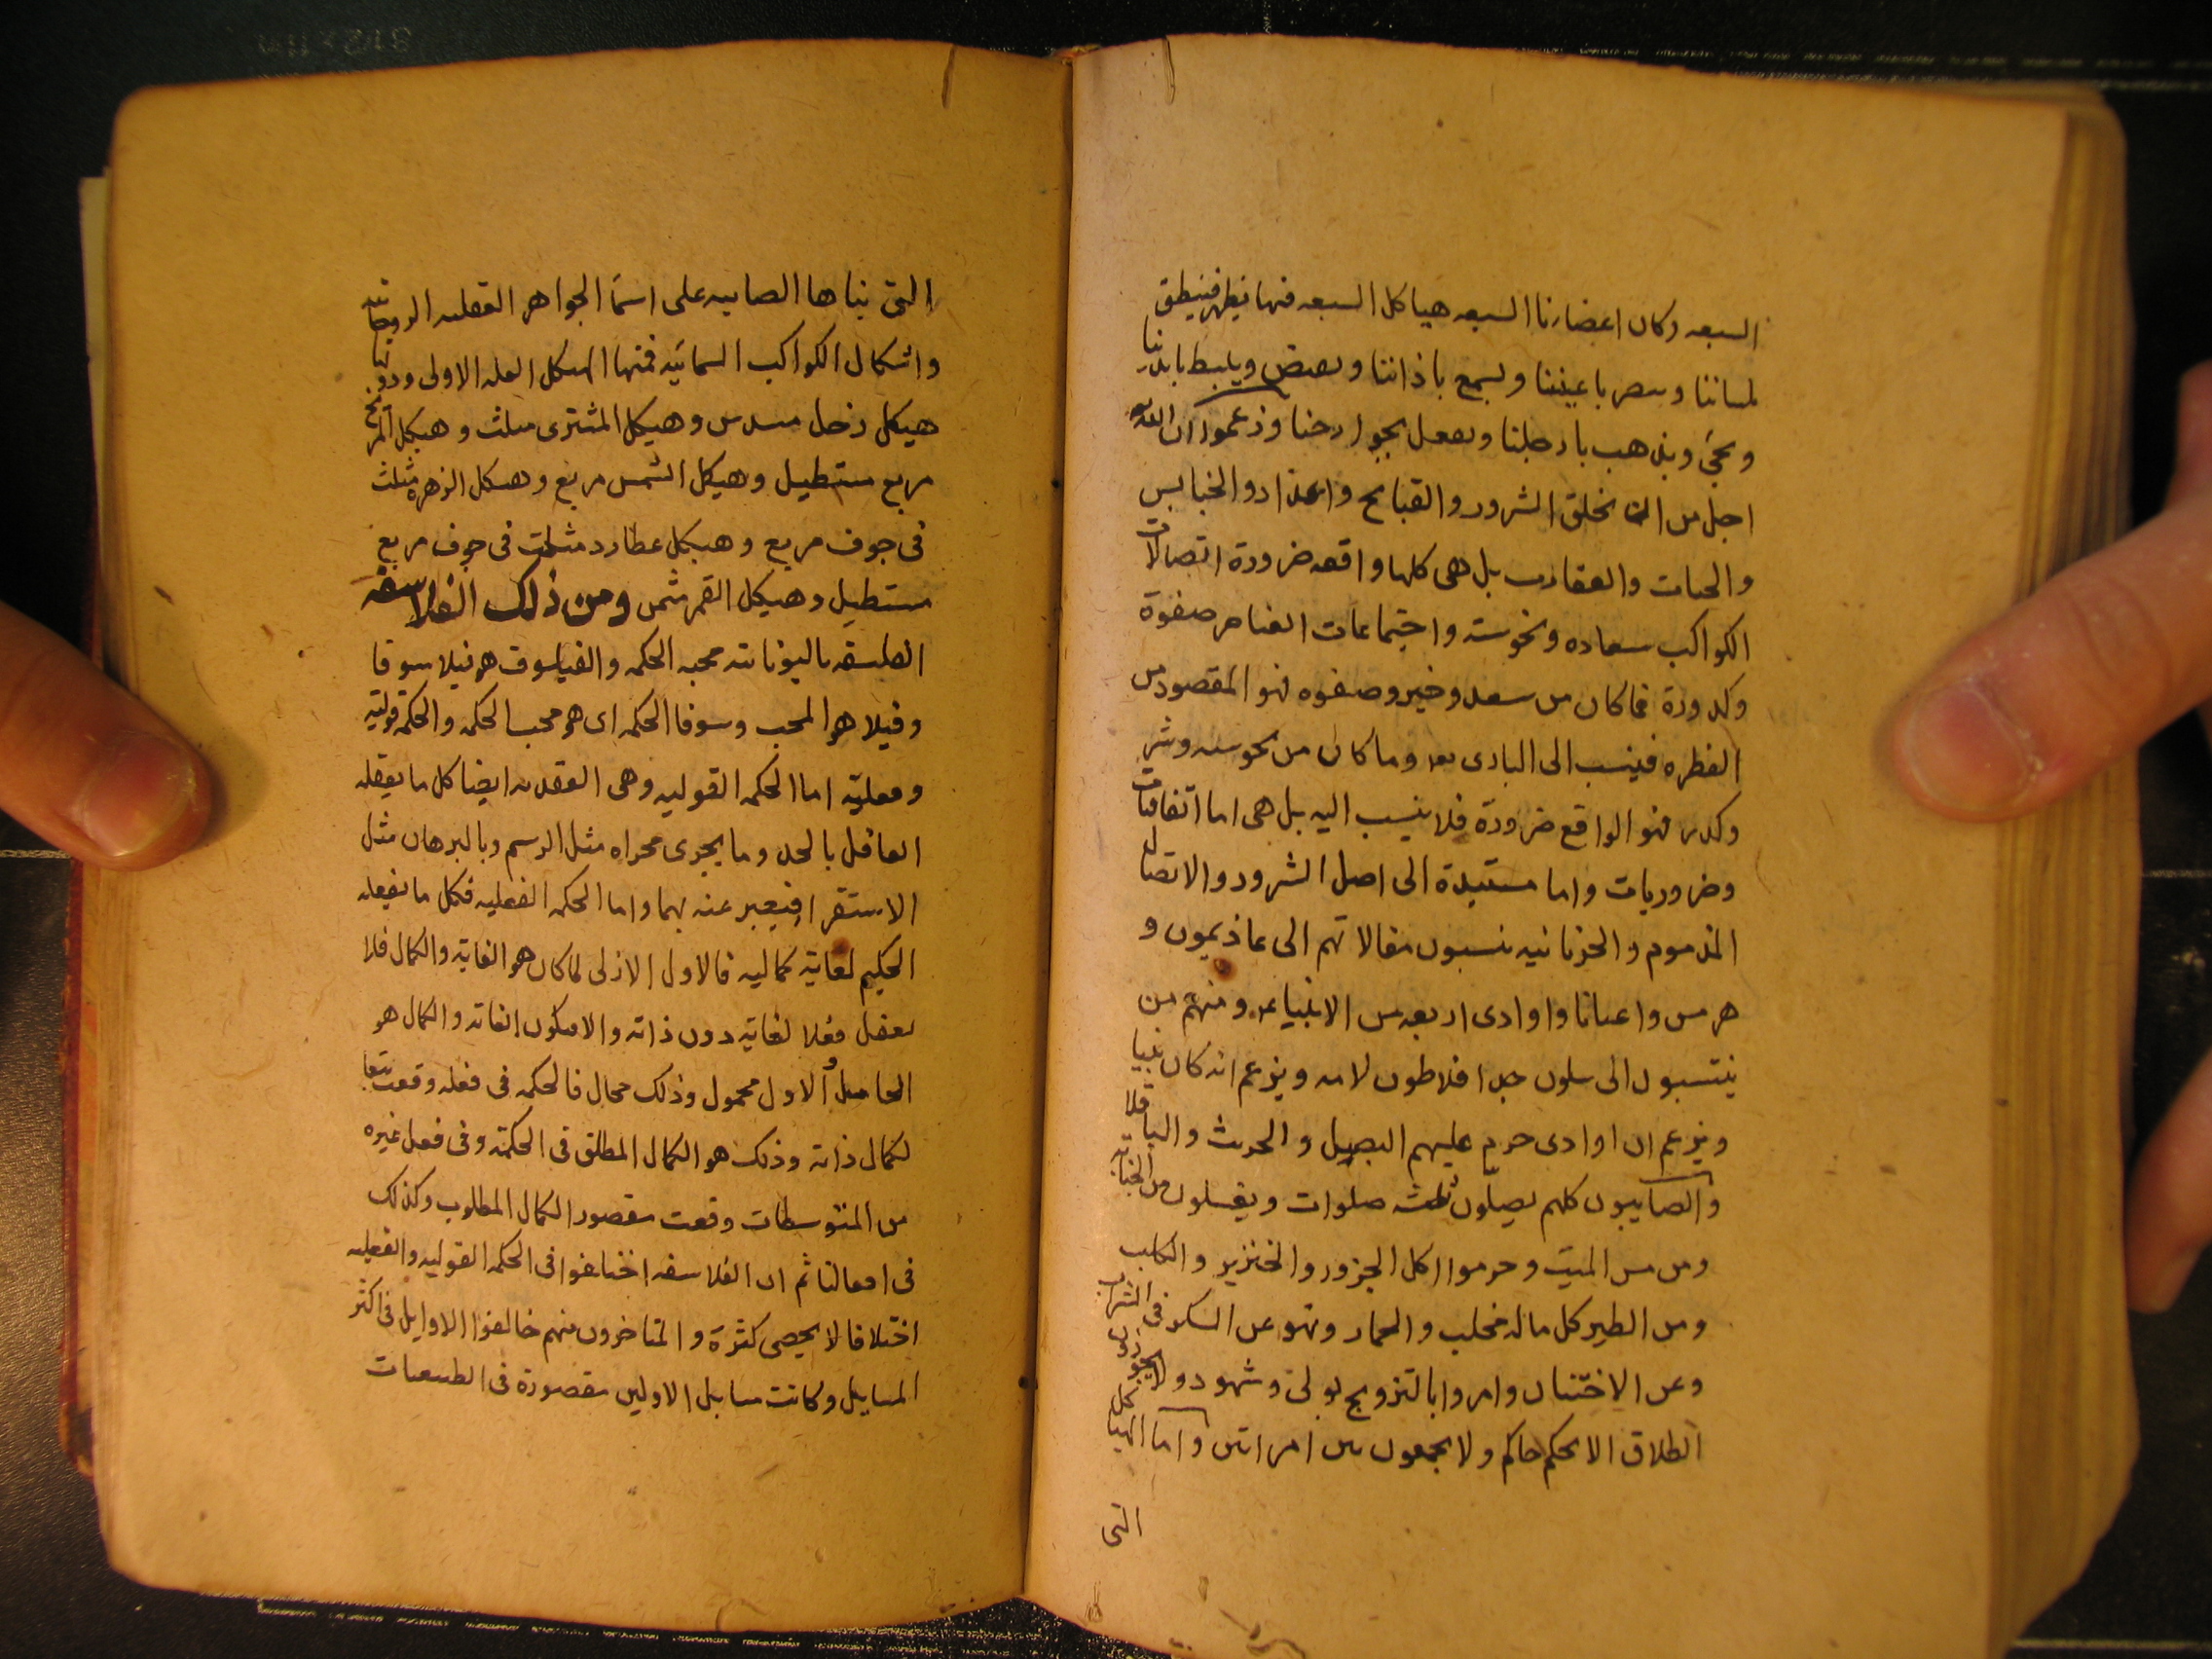 السبعه وكان اعضاءنا السبعه هياكل السبعه فيها يظهر فينطق
بلساننا ويبصر باعيننا ويسمع باذاننا ويقبض ويبسط بايدينا
ويجئ ويذهب بارجلنا ويفعل بجوارحنا وزعموا ان الله
اجل من ان يخلق الشرور والقبايح والاقذار والخنافس
والحيات والعقارب بل هي كلها واقعه ضرورة اتصالات
الكواكب سعاده ونحوسته واجتماعات العناصر صفوة
وكدورة فما كان من سعد وخير وصفوه فهو المقصود من
الفطره فينسب الى البارى تع وما كان من نحوسه وشر
وكدر فهو الواقع ضرورة فلا ينسب اليه بل هي اما اتفاقيات
وضروريات واما مستندة الى اصل الشرور والاتصال
المذموم والحرنانيه ينسبون مقالاتهم الى عاذيمون و
هرمس واعيانا واوادى اربعه من الانبياء ومنهم من
ينتسبون الى سلون جد افلاطون لامه ويزعم انه كان نبيا
ويزعم ان اوادى حرم عليهم البصل والحريث والباقلا
والصابيون كلهم يصلون ثلث صلوات ويغسلون من الجنابه
ومن مس الميت وحرموا اكل الجزور والخنزير والكلب
ومن الطير كل ما له مخلب والحمار ونهو عن السكر في الشراب
وعن الاختتان وامروا بالتزويج بولى وشهود ولا يجوزون
الطلاق الا بحكم حاكم ولا يجمعون بين امراتين واما الهياكل
التى
التى بناها الصابيه على اسما الجواهر العقليه الروحانيه
واشكال الكواكب السمائيه فمنها الهيكل العله الاولى ودونها
هيكل زحل مسدس وهيكل المشترى مثلث وهيكل المريخ
مربع مستطيل وهيكل الشمس مربع وهيكل الزهره مثلث
في جوف مربع وهيكل عطارد مثلث في جوف مربع
مستطيل وهيكل القمر مثمن ومن ذلك الفلاسفه
الفلسفه باليونانيه محبه الحكمه والفيلسوف هو فيلا سوفا
وفيلا هو المحب وسوفا الحكمه اى هو محب الحكمه والحكمه قولية
وفعلية اما الحكمه القوليه وهي العقليه ايضا كل ما يعقله
العاقل بالحد وما يجرى مجراه مثل الرسم وبالبرهان مثل
الاستقرا فيعبر عنه بهما واما الحكمه الفعليه فكل ما يفعله
الحكيم لغاية كماليه فالاول الازلى لما كان هو الغاية والكمال فلا
يفعل فعلا لغاية دون ذاته والا فيكون الغايه والكمال هو
الحامل والاول محمول وذلك محال فالحكمه في فعله وقعت تبعا
لكمال ذاته وذلك هو الكمال المطلق في الحكمة وفى فعل غيره
من المتوسطات وقعت مقصود الكمال المطلوب وكذلك
في افعالنا ثم ان الفلاسفه اختلفوا في الحكمه القوليه والفعليه
اختلافا لا يحصى كثرة والمتاخرون منهم خالفوا الاوايل في اكثر
المسايل وكانت مسايل الاولين مقصورة فى الطبيعيات